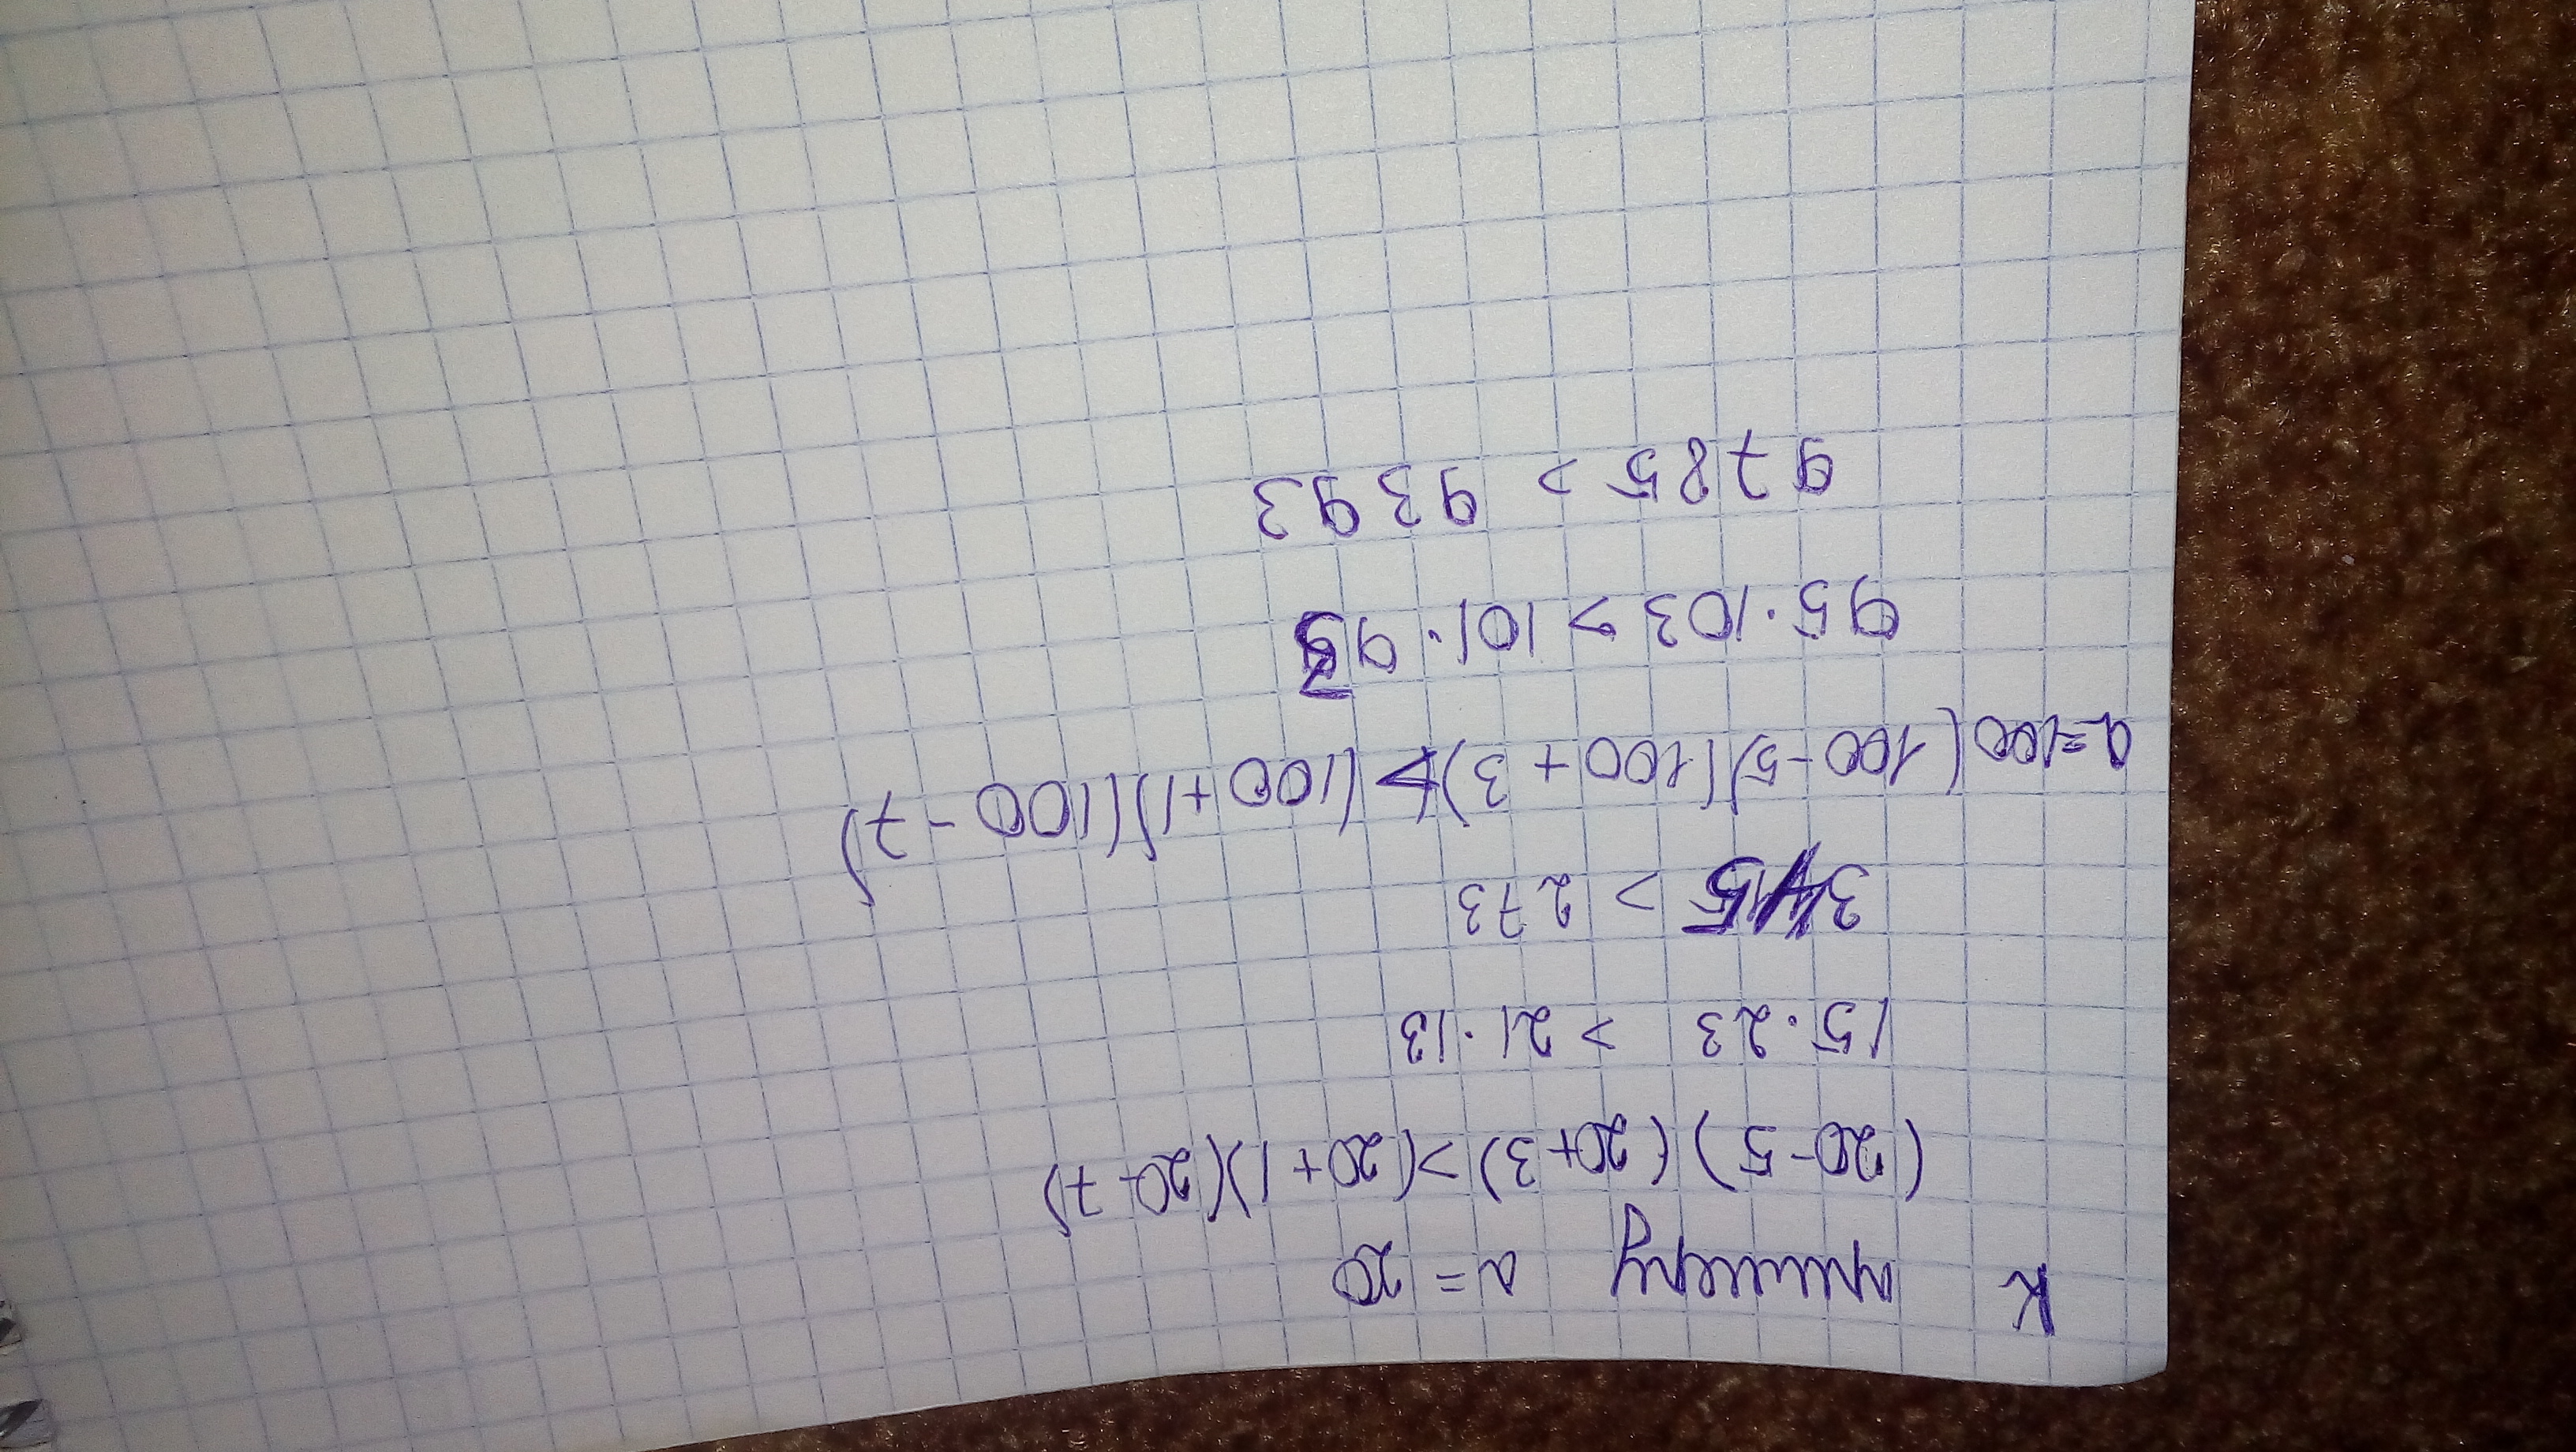 К примеру a = 20
(20-5) (20+3)>(20+1)(20-7)
15·23 > 21·13
345 > 273
a=100 (100-5)(100+3)>(100+1)(100-7)
95·103 > 101·93
9785 > 9393